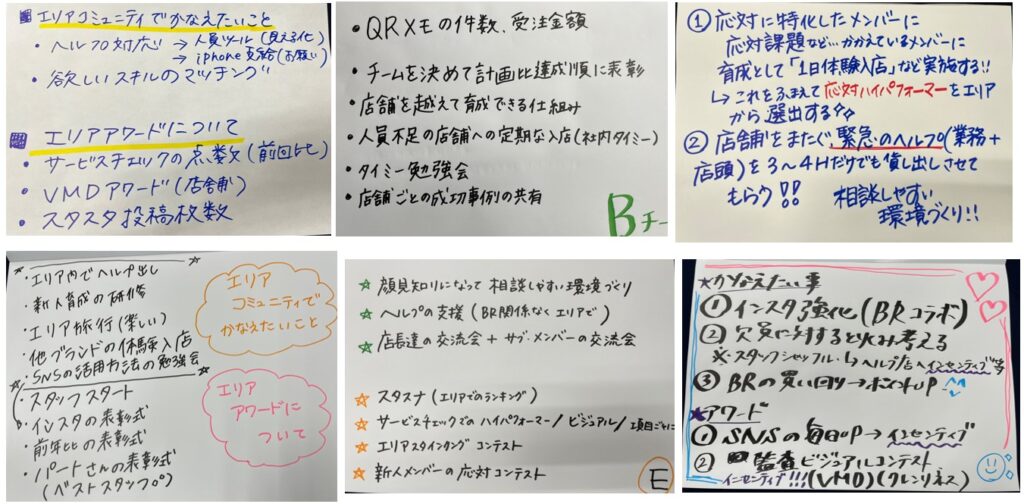 エリアコミュニティでかなえたいこと
・ヘルプ対応 → 人員ツール(見える化)
→ iphone支給(お願い)
・欲しいスキルのマッチング
エリアアワードについて
・サービスチェックの点数(前回比)
・VMDアワード(店舗)
・スタスタ投稿枚数
・QRメモの件数、受注金額
・チームを決めて計画比達成順に表彰
・店舗を越えて育成できる仕組み
・人員不足の店舗への定期な入店(社内タイミー)
・タイミー勉強会
・店舗ごとの成功事例の共有
Bチー
① 応対に特化したメンバーに
応対課題など…かかえているメンバーに
育成として「1日体験入店」など実施する!!
↳ これをふまえて応対ハイパフォーマーをエリア
から選出する
② 店舗をまたぐ、緊急のヘルプ(業務+
店頭)を3〜4Hだけでも貸し出しさせて
もらう!! 相談しやすい
環境づくり!!
・エリア内でヘルプ出し
・新人育成の研修
・エリア旅行(楽しい)
・他ブランドの体験入店
・SNSの活用方法の勉強会
エリア
コミュニティで
かなえたいこと
・スタッフスタート
・インスタの表彰式
・前年比の表彰式
・パートさんの表彰式
(ベストスタッフ)
エリア
アワードに
ついて
☆ 顔見知りになって 相談しやすい環境づくり
☆ ヘルプの支援(BR関係なくエリアで)
☆ 店長達の交流会+サブ・メンバーの交流会
☆ スタスナ(エリアでのランキング)
☆ サービスチェックでのハイパフォーマー/ビジュアル/項目ごとに
☆ エリアスタインタング コンテスト
☆ 新人メンバーの応対コンテスト
E
★かなえたい事
① インスタ強化(BRコラボ)
② 欠員に対するとりくみ考える
※・スタッフシャッフル・↳ヘルプ店へインセンティブ等
③ BRの買い回り→ポイントUP
★アワード
① SNSの毎日UP→インセンティブ
② 監査ビジュアルコンテスト
インセンティブ!!!(VMD)(クレンリネス)